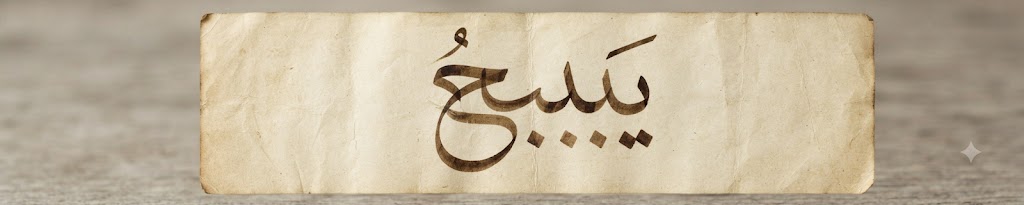 يَبببحُ